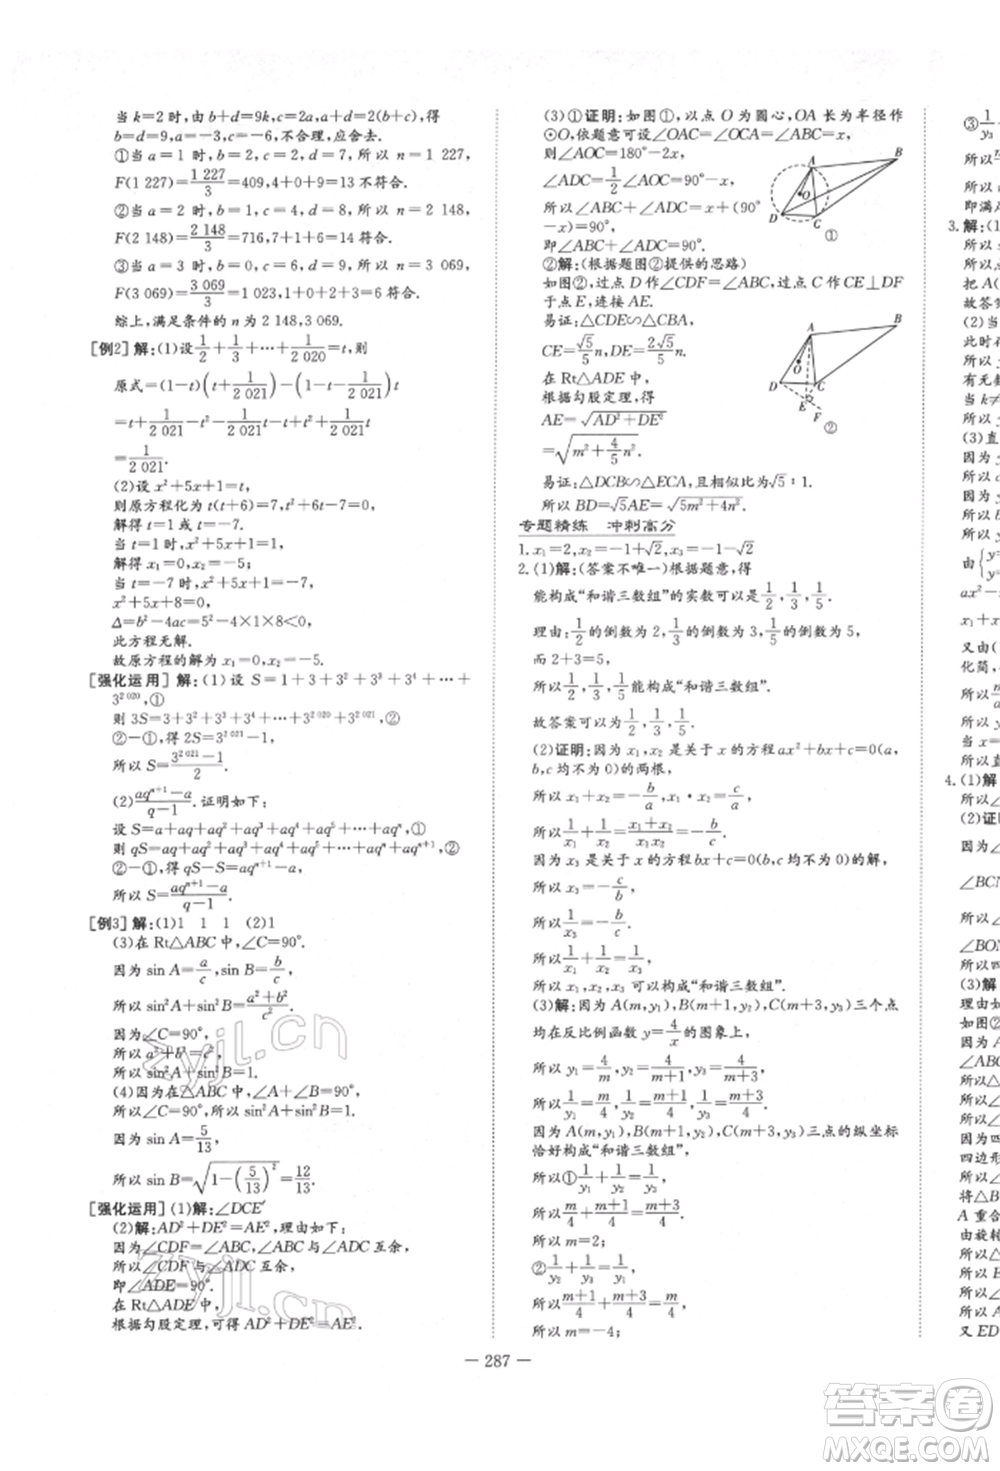 当 k=2 时,由 b+d=9k,c=2a,a+d=2(b+c),得
b=d=9,a=-12,c=-6,不合理,应舍去.
①当 a=1 时,b=2,d=7,c=2,所以 n=1 227,
F(1 227)=1 227/3=409,4+0+9=13 不符合.
②当 a=2 时,b=1,d=8,c=4,所以 n=2 148,
F(2 148)=2 148/3=716,7+1+6=14 符合.
③当 a=3 时,b=0,d=9,c=6,所以 n=3 069,
F(3 069)=3 069/3=1 023,1+0+2+3=6 符合.
综上,满足条件的 n 为 2 148,3 069.
[例2] 解:(1)设 1/2+1/3+…+1/2 020=t,则
原式=(1-t)(t+1/2 021)-(1-t-1/2 021)t
=t+1/2 021-t²-t/2 021-t+t²+t/2 021
=1/2 021.
(2)设 x²+5x+1=t,
则原方程化为 t(t+6)=7,t²+6t-7=0,
解得 t=1 或 t=-7.
当 t=1 时,x²+5x+1=1,
解得 x₁=0,x₂=-5;
当 t=-7 时,x²+5x+1=-7,
x²+5x+8=0,
Δ=b²-4ac=5²-4×1×8<0,
此方程无解.
故原方程的解为 x₁=0,x₂=-5.
[强化运用] 解:(1) 设 S=1+3+3²+3³+3⁴+…+
3²⁰²⁰,①
则 3S=3+3²+3³+3⁴+…+3²⁰²⁰+3²⁰²¹,②
②-①,得 2S=3²⁰²¹-1,
所以 S=(3²⁰²¹-1)/2.
(2)(aqⁿ⁺¹-a)/(q-1).证明如下:
设 S=a+aq+aq²+aq³+aq⁴+…+aqⁿ,①
则 qS=aq+aq²+aq³+aq⁴+…+aqⁿ⁺¹,②
②-①,得 qS-S=aqⁿ⁺¹-a,
所以 S=(aqⁿ⁺¹-a)/(q-1).
[例3] 解:(1)1 1 1 (2)1
(3)在 Rt△ABC 中,∠C=90°.
因为 sin A=a/c,sin B=b/c,
所以 sin²A+sin²B=(a²+b²)/c².
因为∠C=90°,
所以 a²+b²=c²,
所以 sin²A+sin²B=1.
(4)因为∠A+∠B=90°,
所以∠C=90°,所以 sin²A+sin²B=1.
因为 sin A=5/13,
所以 sin B=√(1-(5/13)²)=12/13.
[强化运用] (1)解:∠DCE
(2)解:AD²+DE²=AE²,理由如下:
因为∠CDF=∠ABC,∠ABC+∠ADC=90°,
所以∠CDF+∠ADC=90°,
即∠ADE=90°.
在 Rt△ADE 中,
根据勾股定理,可得 AD²+DE²=AE².
(3)①证明:如图①,以点 O 为圆心,OA 长为半径作
⊙O,依题意可设∠OAC=∠OCA=∠ABC=x°,
则∠AOC=180°-2x°,
∠ADC=1/2∠AOC=90°-x°,
所以∠ABC+∠ADC=x°+(90°
-x°)=90°,
即∠ABC+∠ADC=90°.
A B O D C
①
②解:(根据题图②提供的思路)
如图②,作∠CDF=∠ABC,过点 C 作 CE⊥DF
于点 E,连接 AE.
易证:△CDE∽△CBA,
CE=√5/5 n,DE=2√5/5 n,
在 Rt△ADE 中,
根据勾股定理,得
AE=√(AD²+DE²)
=√(m²+4/5 n²).
A B O D C E F
②
易证:△DCB∽△ECA,且相似比为√5∶1.
所以 BD=√5AE=√(5m²+4n²).
专题精练 冲刺高分
1.x₁=2,x₂=-1+√2,x₃=-1-√2
2.(1)解:(答案不唯一)根据题意,得
能构成“和谐三数组”的实数可以是1/2,1/3,1/5.
理由:1/2的倒数为 2,1/3的倒数为 3,1/5的倒数为 5,
而 2+3=5,
所以1/2,1/3,1/5能构成“和谐三数组”.
故答案可以为1/2,1/3,1/5.
(2)证明:因为 x₁,x₂ 是关于 x 的方程 ax²+bx+c=0(a,
b,c 均不为 0)的两根,
所以 x₁+x₂=-b/a,x₁·x₂=c/a,
所以1/x₁+1/x₂=(x₁+x₂)/(x₁x₂)=-b/c.
因为 x₃ 是关于 x 的方程 bx+c=0(b,c 均不为 0)的解,
所以 x₃=-c/b,
所以1/x₃=-b/c,
所以1/x₁+1/x₂=1/x₃,
所以 x₁,x₂,x₃ 可以构成“和谐三数组”.
(3)解:因为 A(m,y₁),B(m+1,y₂),C(m+3,y₃)三个点
均在反比例函数 y=4/x 的图象上,
所以 y₁=4/m,y₂=4/(m+1),y₃=4/(m+3),
所以1/y₁=m/4,1/y₂=(m+1)/4,1/y₃=(m+3)/4.
因为 A(m,y₁),B(m+1,y₂),C(m+3,y₃)三点的纵坐标
恰好构成“和谐三数组”,
所以①1/y₁+1/y₂=1/y₃,
所以m/4+(m+1)/4=(m+3)/4,
所以 m=2;
②1/y₂+1/y₃=1/y₁,
所以(m+1)/4+(m+3)/4=m/4,
所以 m=-4;
— 287 —
所以
即满足
3.解:(1
所以
把 A(
故答
(2)当
此时
有无
当 k≠
所以
(3)直
因为
所以
由
ax²
x=
又由
化简
所以
当 x=
所以直
4.(1)解
所以
(2)证
因为
∠BCN
所以
∠BON
所以
(3)解
理由如
如图②
因为 A
∠ABC
所以△
所以
因为
四边形
将△B
A 重合
由旋转
所以△
所以 E
因为
所以 A
又 ED
zyjl.cn
zyjl.cn
答案圈
MXQE.COM